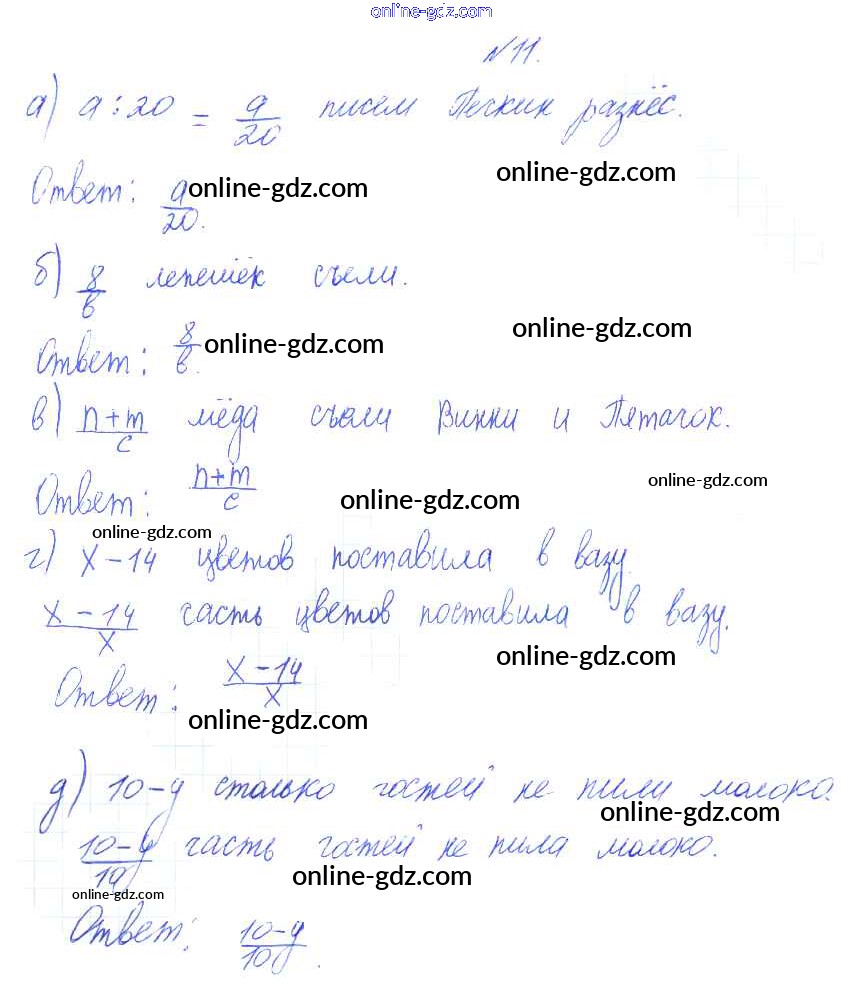 online-gdz.com
№11.
а) a:20 = a/20 писем Печкин разнёс.
online-gdz.com
Ответ: a/20. online-gdz.com
б) 8/в лепешек съели.
online-gdz.com
Ответ: 8/в. online-gdz.com
в) n+m/c мёда съели Винни и Пятачок.
online-gdz.com
Ответ: n+m/c online-gdz.com
online-gdz.com
г) x-14 цветов поставила в вазу.
x-14/x часть цветов поставила в вазу.
online-gdz.com
Ответ: x-14/x
online-gdz.com
д) 10-y столько гостей не пили молоко.
online-gdz.com
10-y/10 часть гостей не пила молоко.
online-gdz.com
online-gdz.com
Ответ: 10-y/10.